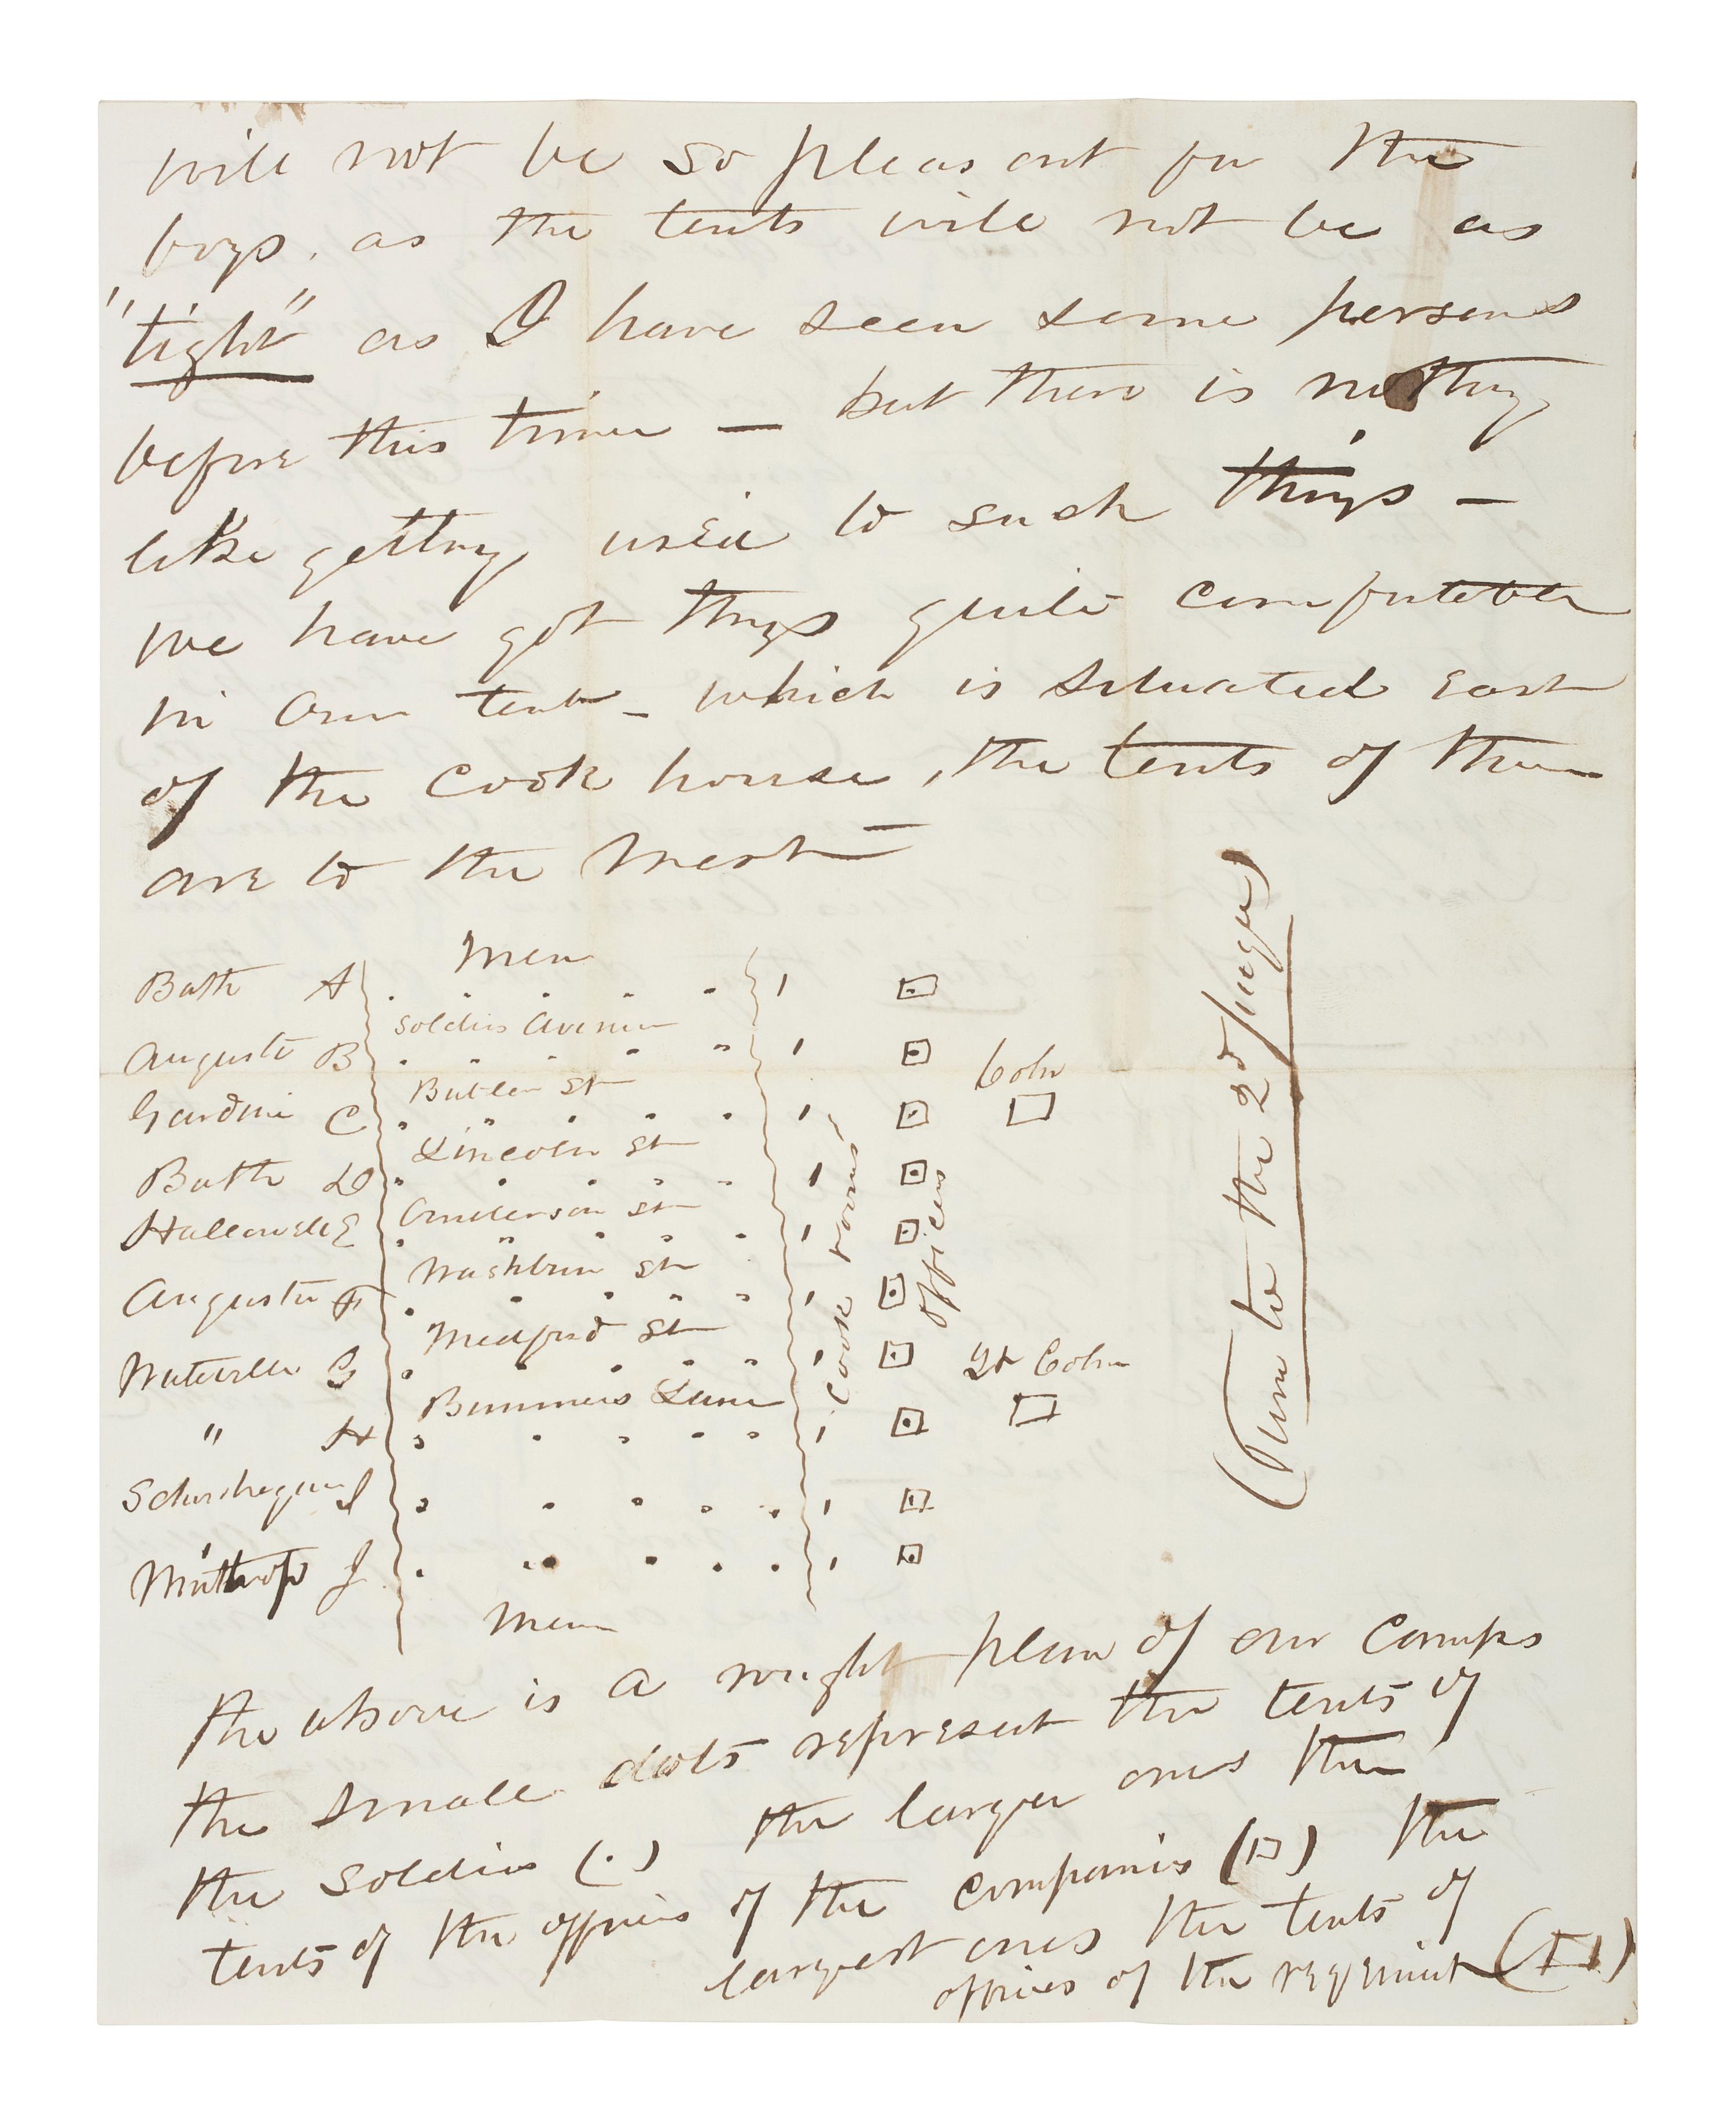 will not be so pleasant for the
boys, as the tents will not be as
"tight" as I have seen some persons
before this time — but there is nothing
like getting used to such things —
we have got things quite comfortable
in our tent — which is situated East
of the cook house, the tents of the men
are to the West —
Men
Bath A
Soldiers Avenue
Augusta B
Butler St
Colo
Gardiner C
Lincoln St
Bath D
Anderson St
Hallowell E
Washburn St
Augusta F
Medford St
Waterville G
Lt Colo
Bummers Lane
" H
Schowhegan I
Winthrop J
Men
Cook rooms
Officers
(Turn to the 2d page)
The above is a rough plan of our Camps
the small dots represent the tents of
the soldiers (.) the larger ones the
tents of the officers of the companies (□) the
largest ones the tents of
officers of the regiment (□)